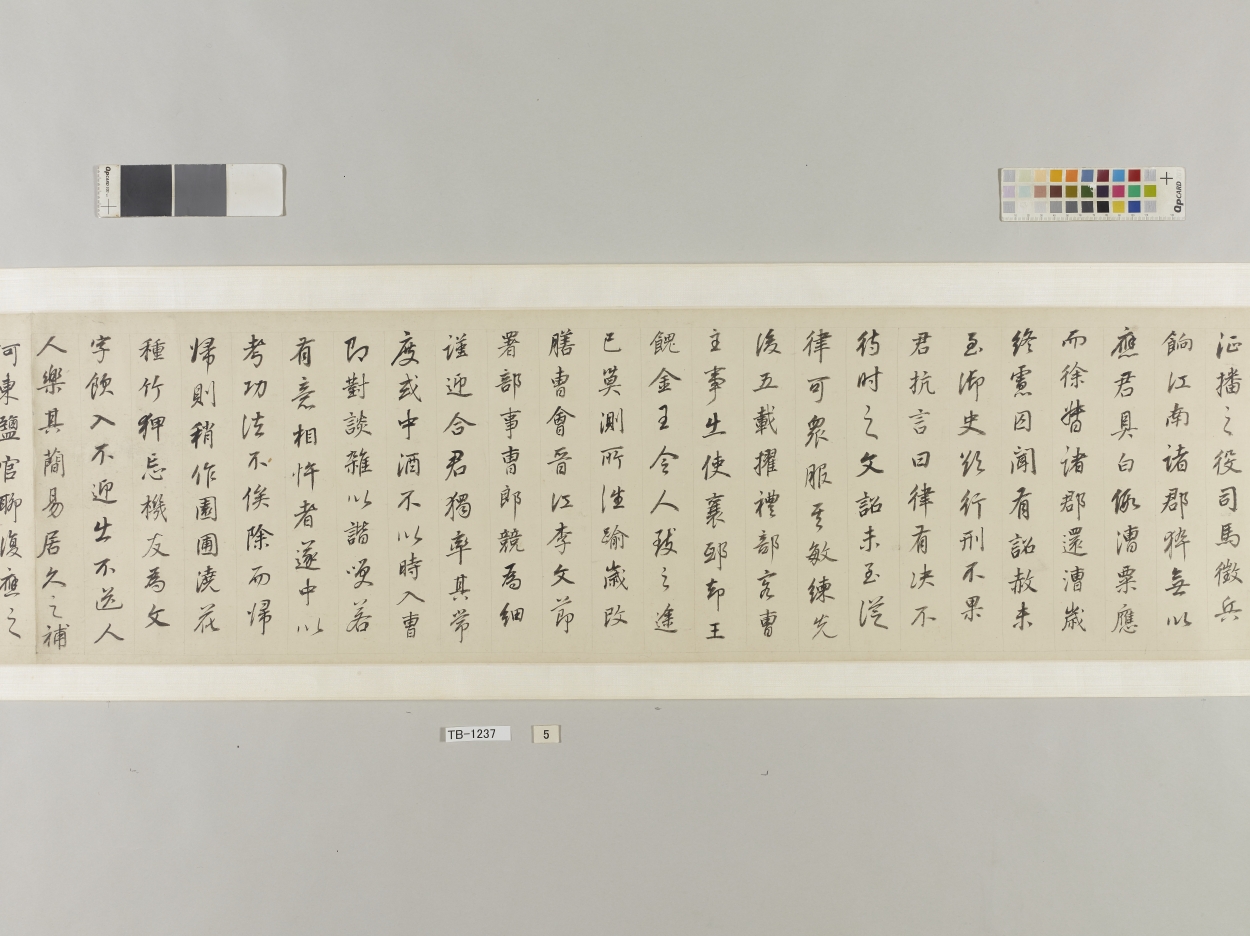 征播之役司馬徵兵
餉江南諸郡猝無以
應君具白假漕粟應
而徐措諸郡還漕歲
終慮囚聞有詔赦未
至御史欲行刑不果
君抗言曰律有决不
待时之文詔未至從
律可衆服其敏練先
後五載擢禮部客曹
主事出使襄邸却王
餽金王令人致之途
已莫測所往踰歲改
膳曹會晉江李文節
署部事曹郎競為細
謹迎合君獨率其常
度或中酒不以時入曹
即對談雜以諧哽若
有意相忤者遂中以
考功法不俟除而歸
歸則稍作園圃澆花
種竹狎忘機友為文
字飲入不迎出不送人
人樂其簡易居久之補
河東鹽官聊復應之
TB-1237
5
QPCARD
QPCARD